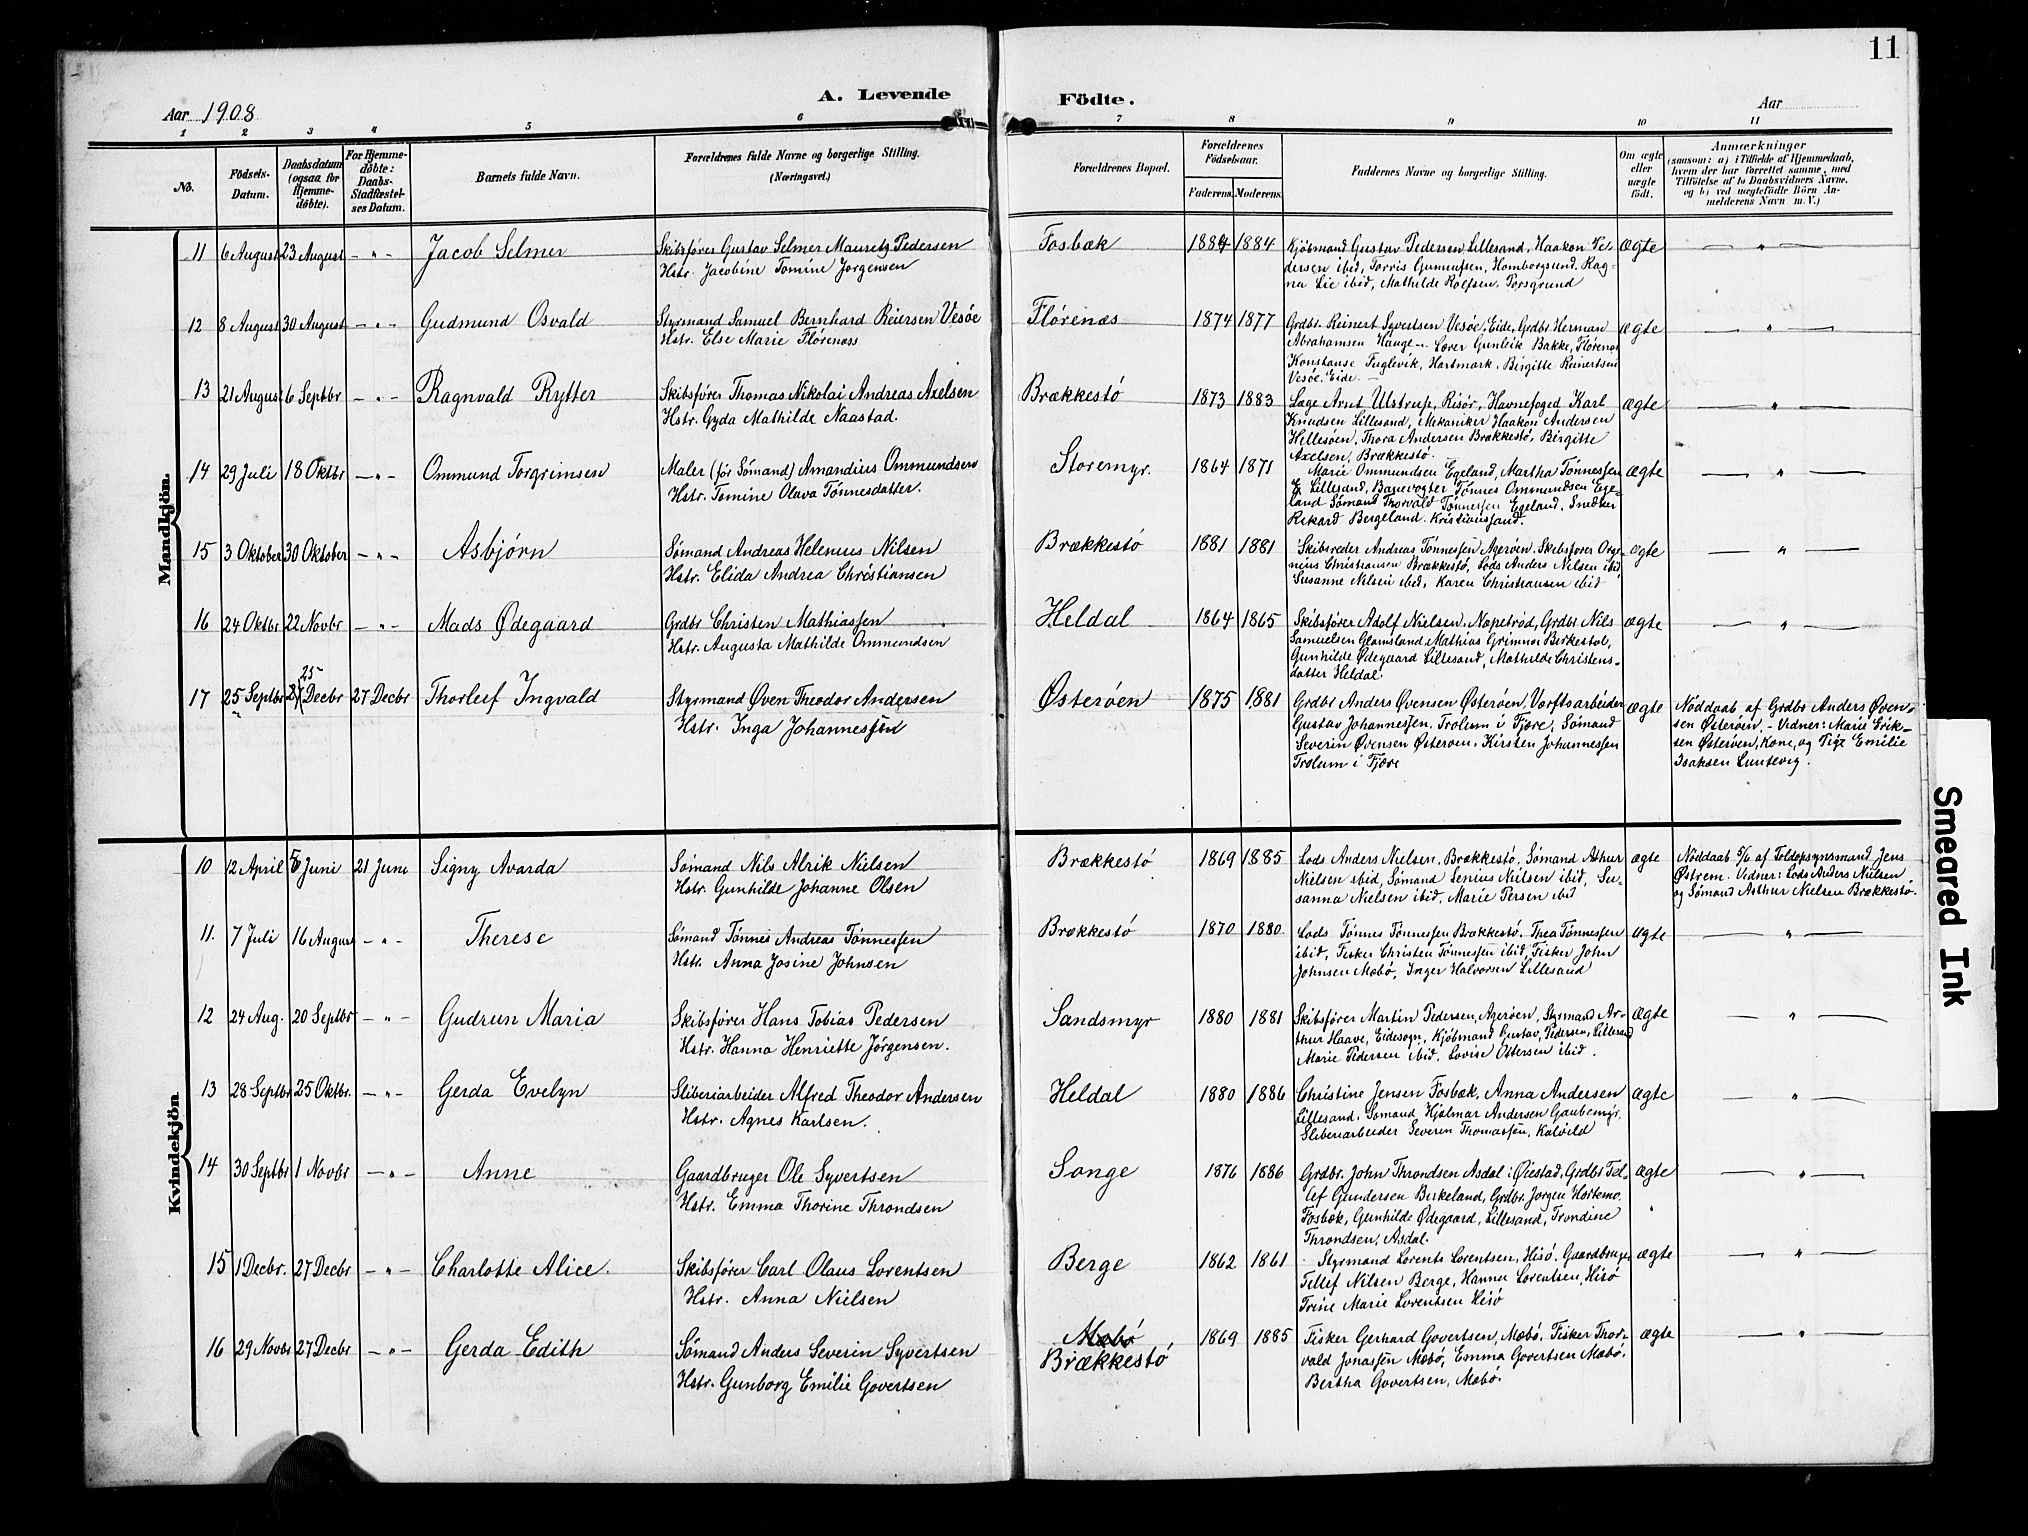 11
A. Levende Födte.
Aar 1908
Aar
1 2 3 4 5 6 7 8 9 10 11
No.
Födsels-
Datum.
Daabsdatum
(ogsaa for
Hjemme-
døbte).
For Hjemme-
døbte:
Daabs-
Stadfæstel-
ses Datum.
Barnets fulde Navn.
Forældrenes fulde Navne og borgerlige Stilling.
(Næringsvei.)
Forældrenes Bopæl.
Forældrenes
Födselsaar.
Faderens. Moderens.
Faddernes Navne og borgerlige Stilling.
Om ægte
eller
uægte
født.
Anmærkninger
(saasom: a) i Tilfælde af Hjemmedaab,
hvem der har forrettet samme, med
Tilföielse af to Daabsvidners Navne.
og b) ved uægtefödte Börn An-
melderens Navn m. V.)
Mandkjön.
11 6 August 23 August — " — Jacob Selmer
Skibsfører Gustav Selmer Mauretz Pedersen
Hstr. Jacobine Tomine Jorgensen
Fosbæk 1884 1884
Kjøbmand Gustav Pedersen Lillesand, Haakon Pe-
dersen ibid, Torris Gunnufsen, Homborgsund. Rag-
na Lie ibid, Mathilde Rolfsen. Porsgrund
ægte — " —
12 8 August 30 August — " — Gudmund Osvald
Styrmand Samuel Bernhard Reiersen Vesøe
Hstr. Else Marie Flörenæs
Flörenæs 1874 1877
Grdbr. Reinert Syvertsen Vesøe, Eide, Grdbr Herman
Abrahamsen Hauge — Lærer Gunleik Bakke, Flörenæs
Konstanse Fuglevik, Hartmark. Birgitte Reinertsen
Vesøe. Eide. —
ægte — " —
13 21 August 6 Septbr — " — Ragnvald Rytter
Skibsfører Thomas Nikolai Andreas Axelsen
Hstr. Gyda Mathilde Naastad.
Brækkestö 1873 1883
Læge Arnt Ulstrup, Risör, Havnefoged Karl
Knudsen Lillesand, Mekaniker Haakon Andersen
Hellesöen, Thora Andersen Brækkestö, Birgitte
Axelsen, Brækkestö.
ægte — " —
14 29 Juli 18 Oktbr — " — Ommund Torgrimsen
Maler (før Sømand) Amandius Ommundsen
Hstr. Tomine Olava Tønnesdatter.
Storemyr. 1864 1871
Marie Ommundsen Egeland, Martha Tønnessen
Lillesand, Banevogter Tønnes Ommundsen Ege-
land Sømand Thorvald Tønnessen Egeland. Snedker
Rikard Bergeland. Kristianssand.
ægte — " —
15 3 Oktober 30 Oktober — " — Asbjørn
Sømand Andreas Helenius Nilsen
Hstr. Elida Andrea Christiansen
Brækkestö 1881 1881
Skibsreder Andreas Tønnessen Agerøen. Skibsfører Orge-
nius Christiansen Brækkestö, Lods Anders Nilsen ibid,
Susanne Nilsen ibid, Karen Christiansen ibid
ægte — " —
16 24 Oktbr 22 Novbr — " — Mads Ødegaard
Grdbr Christen Mathiassen
Hstr. Augusta Mathilde Ommundsen
Heldal 1864 1865
Skibsfører Adolf Nielsen. Næpetröd, Grdbr Nils
Samuelsen Glamsland Mathias Grimnes Berkestol,
Gunhilde Ødegaard Lillesand, Mathilde Christens-
datter Heldal.
ægte — " —
25
17 25 Septbr 27 Decbr 27 Decbr Thorleif Ingvald
Styrmand Øven Theodor Andersen
Hstr. Inga Johannessen
Østerøen 1875 1881
Grdbr Anders Øvensen Østerøen, Værftsarbeider
Gustav Johannessen, Trolum i Fjære, Sømand
Severin Øvensen Østerøen, Kirsten Johannessen
Trolum i Fjære
ægte
Nöddaab af Grdbr Anders Øven-
sen Østerøen, — Vidner: Marie Erik-
sen Østerøen, Kone, og Pige Emilie
Isaksen Luntevig.
Kvindekjön
10 12 April 5 Juni 21 June Signy Avarda
Sømand Nils Alrik Nielsen
Hstr. Gunhilde Johanne Olsen
Brækkestö 1869 1885
Lods Anders Nielsen, Brækkestö, Sømand Athur
Nielsen ibid, Sømand Lenius Nielsen ibid, Su-
sanna Nielsen ibid, Marie Persen ibid
ægte
Nöddaab 5/6 af Toldopsynsmand Jens
Østrem. Vidner: Lods Anders Nielsen
og Sømand Asthur Nielsen Brækkestö.
11. 7 Juli 16 August — " — Therese
Sømand Tönnes Andreas Tönnessen
Hstr. Anna Josine Johnsen
Brækkestö 1870 1880
Lods Tønnes Tønnessen Brækkestö. Thea Tønnessen
ibid, Fisker Christen Tønnessen ibid, Fisker John
Johnsen Mæbö, Inger Halvorsen Lillesand
ægte — " —
12 24 Aug. 20 Septbr — " — Gudrun Maria
Skibsfører Hans Tobias Pedersen
Hstr. Hanna Henriette Jörgensen.
Sandsmyr 1880 1881
Skibsfører Martin Pedersen, Agerøen, Styrmand Ar-
thur Haave, Eidesogn, Kjöbmand Gustav Pedersen, Lillesand
Marie Pedersen ibid, Lovise Ottersen ibid.
ægte — " —
13 28 Septbr 25 Oktbr. — " — Gerda Evelyn
Sliberiarbeider Alfred Theodor Andersen
Hstr. Agnes Karlsen.
Heldal 1880 1886
Christine Jensen Fosbæk, Anna Andersen
Lillesand, Sømand Hjalmar Andersen Gaubemyr,
Sliberiarbeider Severin Thomassen, Kalvild
ægte — " —
14 30 Septbr 1 Novbr — " — Anne
Gaardbruger Ole Syvertsen
Hstr. Emma Thorine Throndsen
Songe 1876 1886
Grdbr. John Throndsen Asdal i Øiestad, Grdbr Tel-
lef Gundersen Birkeland, Grdbr. Jorgen Hortemo
Fosbæk, Gunhilde Ødegaard, Lillesand, Trondine
Throndsen, Asdal.
ægte — " —
15 1 Decbr. 27 Decbr — " — Charlotte Alice.
Skibsfører Carl Olaus Lorentsen
Hstr. Anna Nielsen
Berge 1862 1861
Styrmand Lorents Lorentsen, Hisö. Gaardbruger
Tellef Nilsen Berge, Hanna Lorentsen, Hisö
Trine Marie Lorentsen Hisö
ægte — " —
16 29 Novbr 27 Decbr — " — Gerda Edith
Sømand Anders Severin Syvertsen
Hstr. Gunborg Emilie Govertsen
Mæbö
Brækkestö 1869 1885
Fisker Gerhard Govertsen, Mæbö, Fisker Thor-
vald Jonassen Mæbö, Emma Govertsen Mæbö,
Bertha Govertsen, Mæbö.
ægte — " —
Smeared Ink